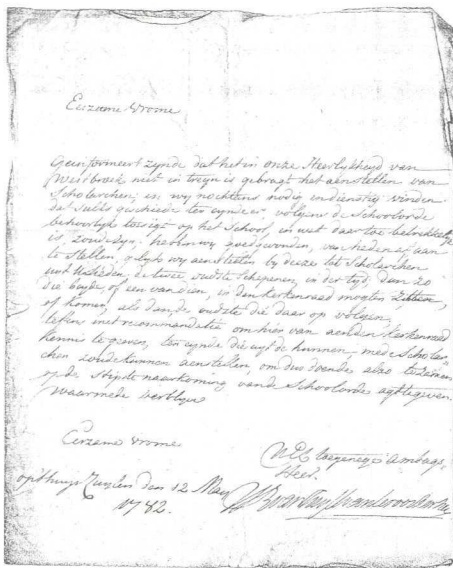 Eerzame Vrome
Geinformeert zynde dat het in onze Heerlykheyd van
Westbroek niet in treyn is gebragt het aenstellen van
Scholarchen, en wy nochtans nodig en dienstig vinden
dat sulks geschiede ten eynde er, volgens de Schoolorde
behoorlyk toesigt op het School, en wat daar toe betrekkelyk
is, zoude zyn: hebben wy goedgevonden, van heden af aan
te stellen, gelyk wy aenstellen by deeze tot Scholarchen
uwt UEheden, de twee oudste Schepenen, in der tyd, dan zo
die beyde, of een van dien, in den kerkenraad mogten zitten,
of komen, als dan de oudste die daar op volgen,
teffens met recommandatie om hier van aen den kerkenraad
kennis te geven, ten eynde die uyt de hunnen, mede Scholar-
chen zoude kunnen aenstellen, om dus doende alzo te zamen
op de stipte naarkoming van de Schoolorde agt te geven.
Waarmede verblyve
Eerzame Vrome
UEE toegenege Ambags-
Heer.
op 't huys Zuylen den 12 May
1782.